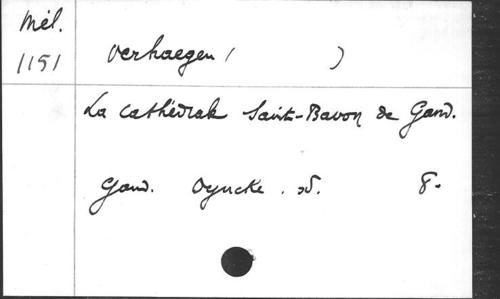 Mél.
1151
Verhaegen ( )
La cathédrale Saint-Bavon de Gand.
Gand. Oyncke. sd. 8°